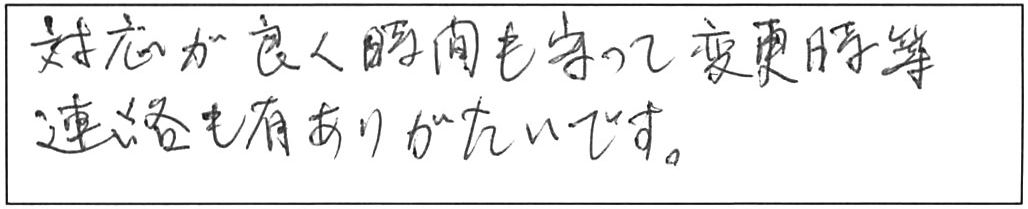 対応が良く時間も守って変更時等
連絡も有ありがたいです。